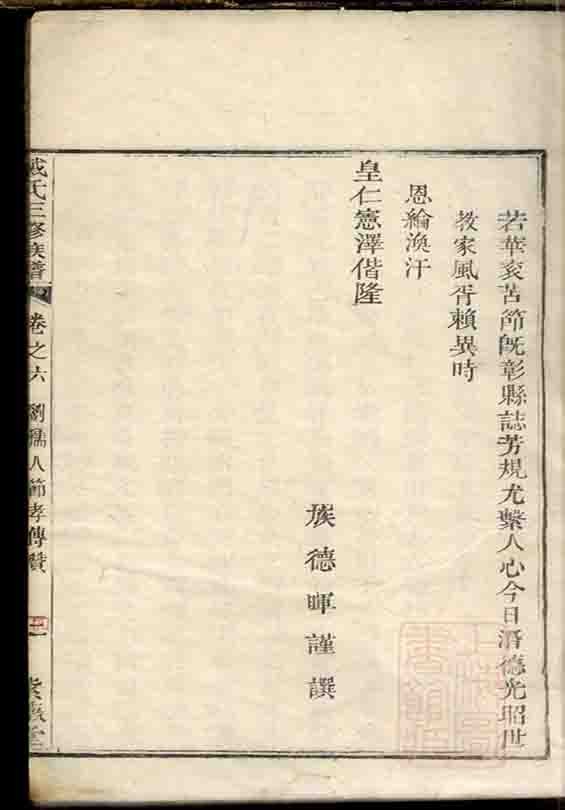 若華袞苦節既彰縣誌芳規尤繫人心今日潛德光昭世
教家風胥賴異時
恩綸渙汗
皇仁憲澤偕隆
族德暉謹譔
戴氏三修族譜
卷之六
劉孺人節孝傳贊